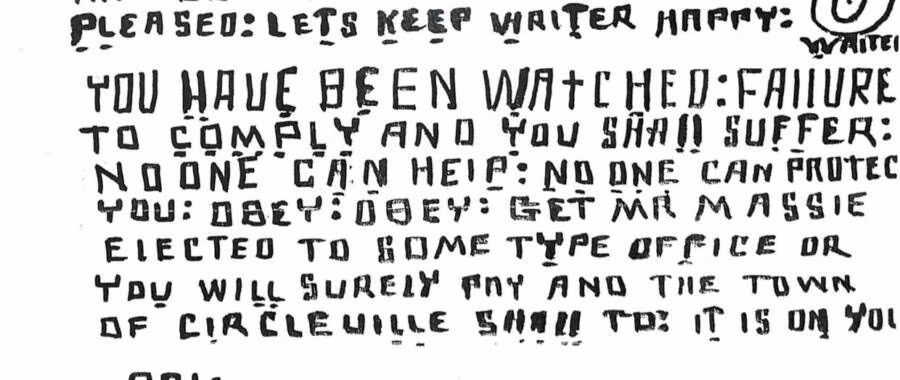 PLEASED: LETS KEEP WRITER HAPPY:
WRITE
YOU HAVE BEEN WATCHED: FAIlURE
TO COMPLY AND YOU SHAll SUFFER:
NO ONE CAN HElP: NO ONE CAN PROTEC
YOU: OBEY: OBEY: GET MR MASSIE
ElECTED TO SOME TYPE OFFICE OR
YOU WILL SURELY PAY AND THE TOWN
OF CIRCLEVILLE SHAll TO: IT IS ON YOU